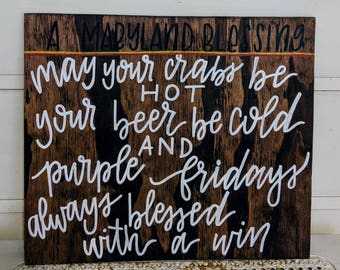 A MARYLAND BLESSING
may your crabs be
HOT
your beer be cold
AND
purple fridays
always blessed
with a win